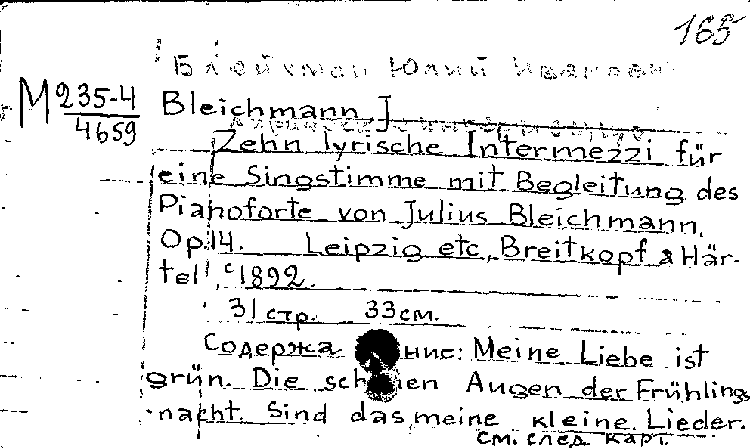 165
Блейхман Юлий Иванович
М 235-4
4659
Bleichmann, J
Zehn lyrische Intermezzi für
eine Singstimme mit Begleitung des
Pianoforte von Julius Bleichmann.
Op. 14. Leipzig etc., Breitkopf & Här-
tel, c 1892.
31 стр. 33 см.
Содержание: Meine Liebe ist
grün. Die schönen Augen der Frühlings
nacht. Sind das meine kleine Lieder.
см. след карт.